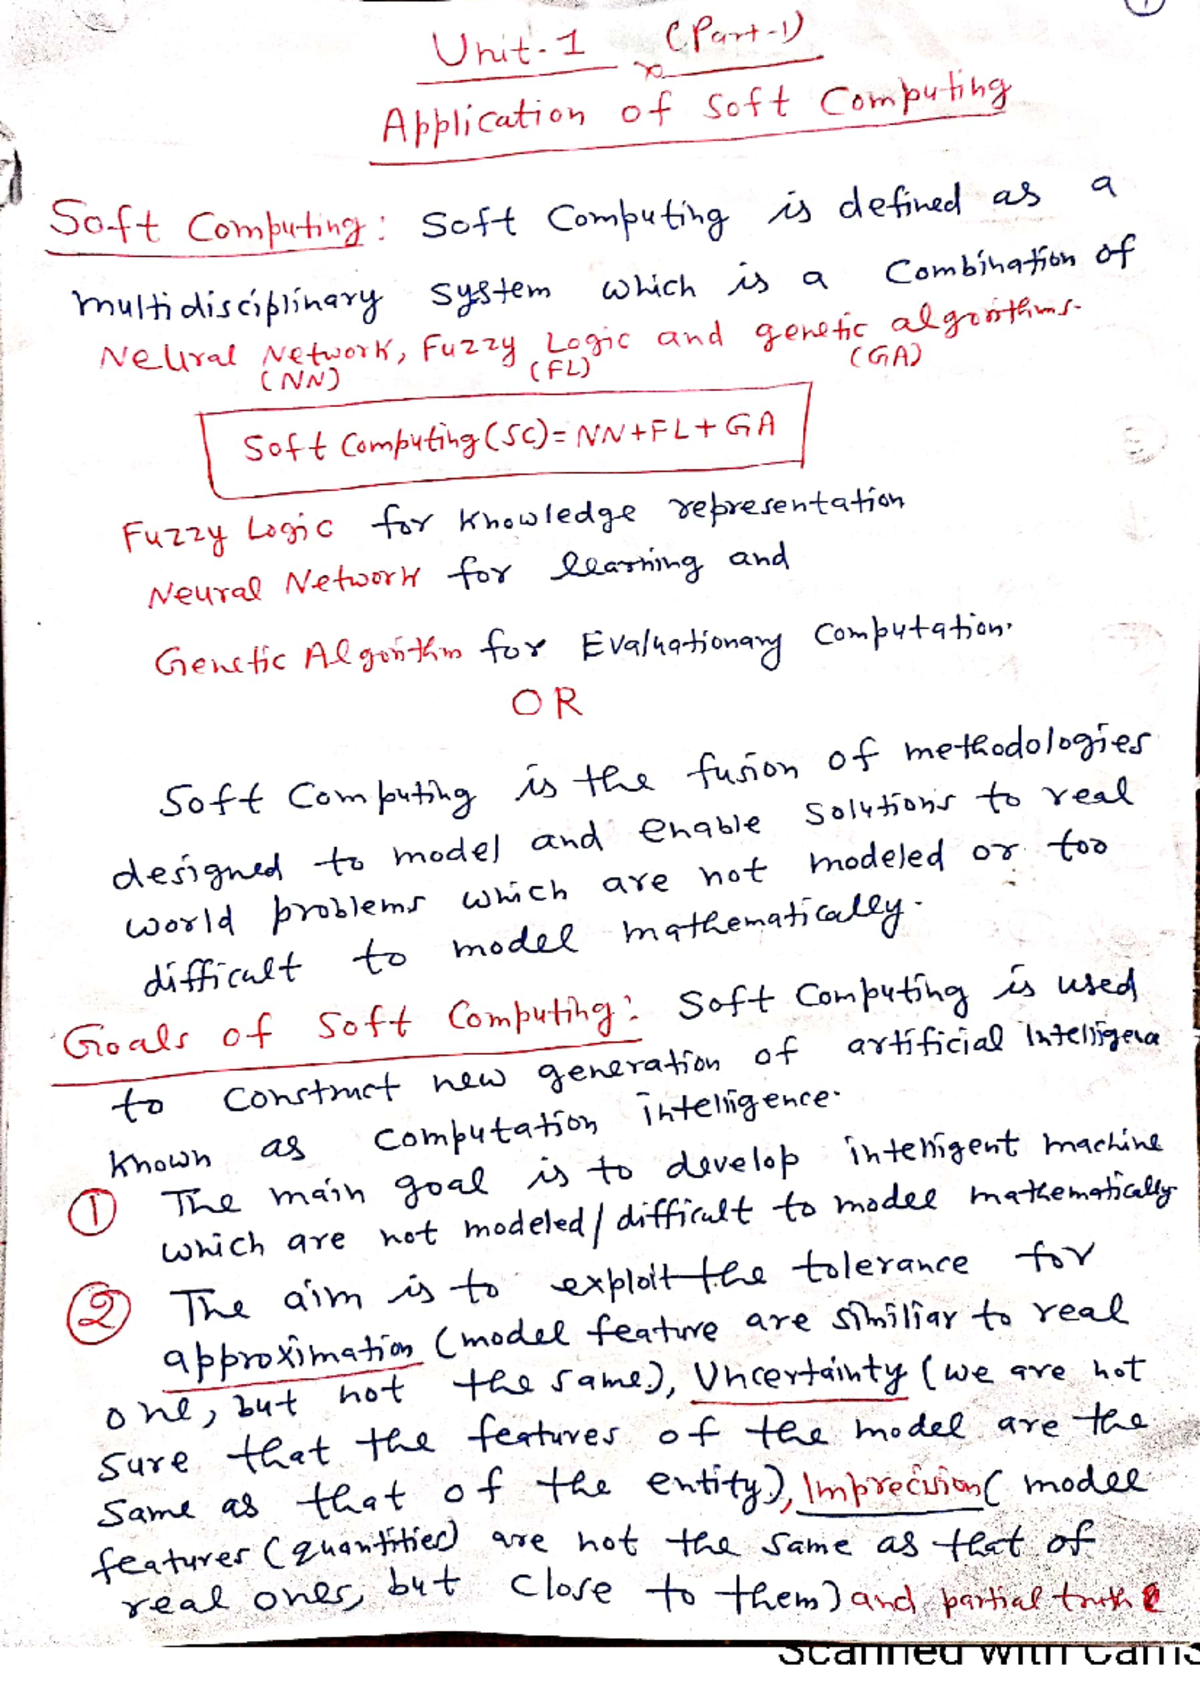 Unit-1 (Part-1)
Application of Soft Computing
Soft Computing: Soft Computing is defined as a
multidisciplinary system which is a Combination of
Neural Network, Fuzzy Logic and genetic algorithms.
(NN) (FL) (GA)
Soft Computing (SC) = NN+FL+GA
Fuzzy Logic for Knowledge representation
Neural Network for learning and
Genetic Algorithm for Evaluationary Computation.
OR
Soft Computing is the fusion of methodologies
designed to model and enable solutions to real
world problems which are not modeled or too
difficult to model mathematically.
Goals of Soft Computing: Soft Computing is used
to construct new generation of artificial
known as Computation intelligence.
① The main goal is to develop intelligent machine
which are not modeled/difficult to model mathematically
② The aim is to exploit the tolerance for
approximation (model feature are similiar to real
one, but not the same), Uncertainty (we are not
sure that the features of the model are the
same as that of the entity), Imprecision ( model
features (quantities) are not the same as that of
real ones, but close to them) and partial truth
Scanned with